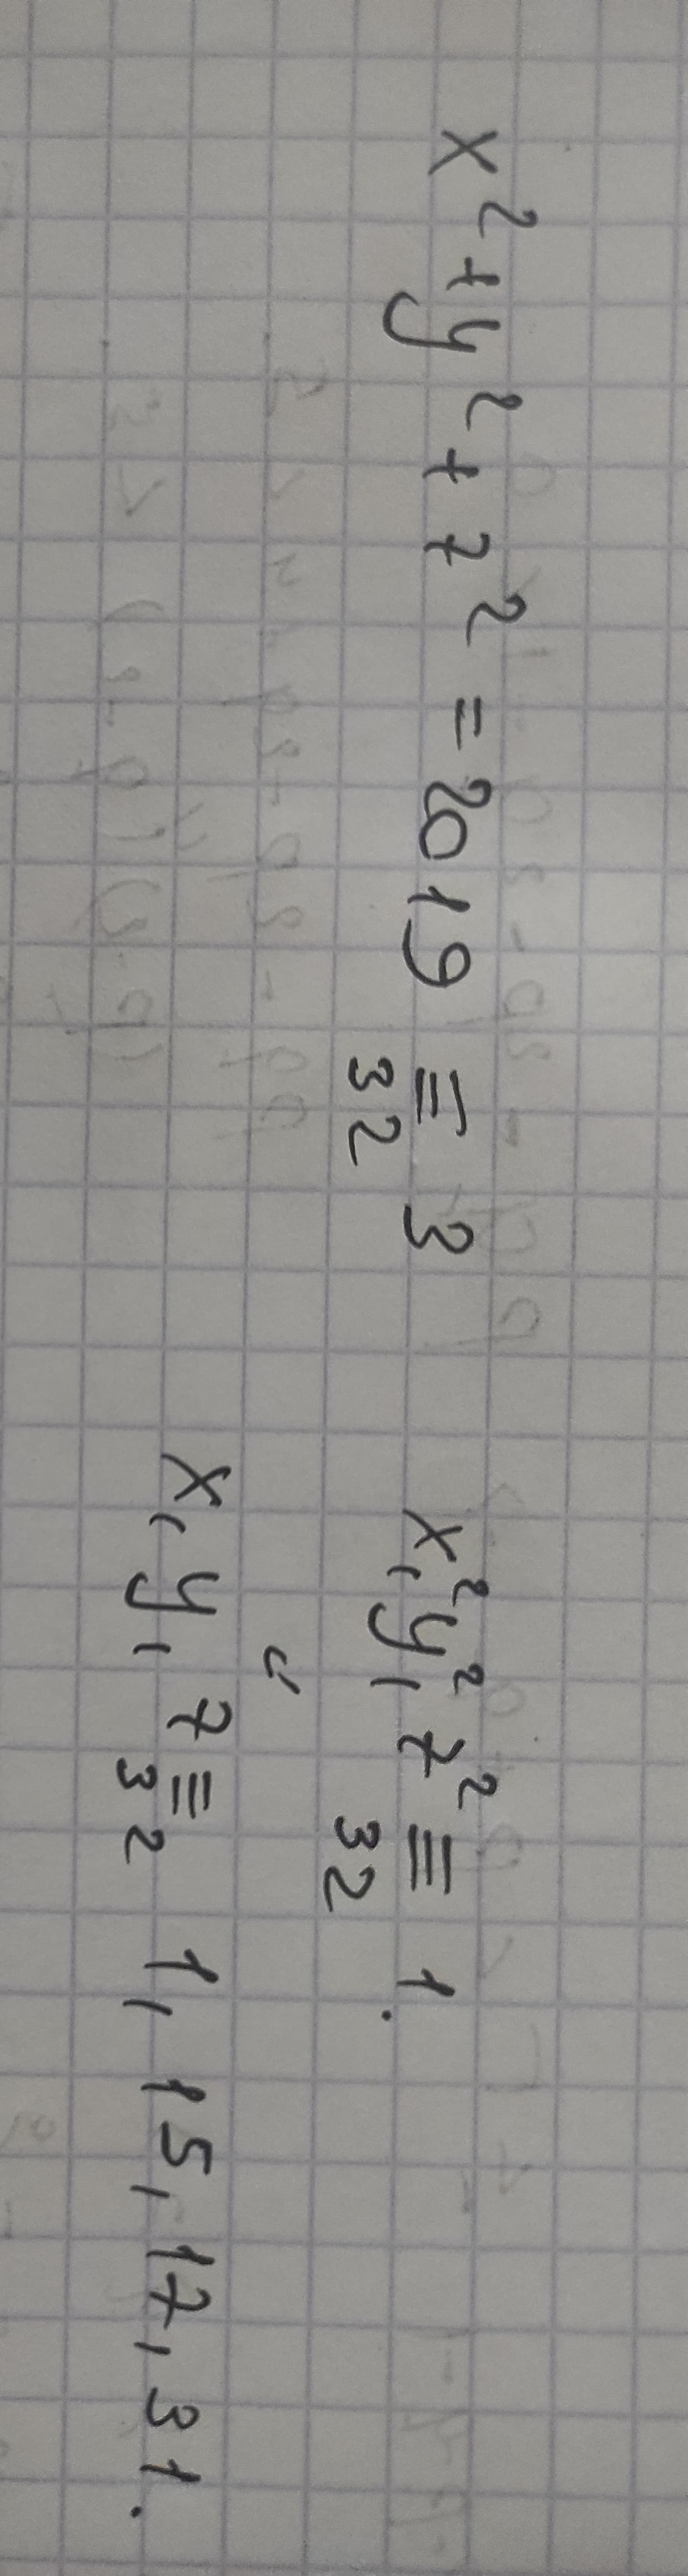 x² + y² + z² = 2019 ≡₃₂ 3
x², y², z² ≡₃₂ 1.
x, y, z ≡₃₂ 1, 15, 17, 31.